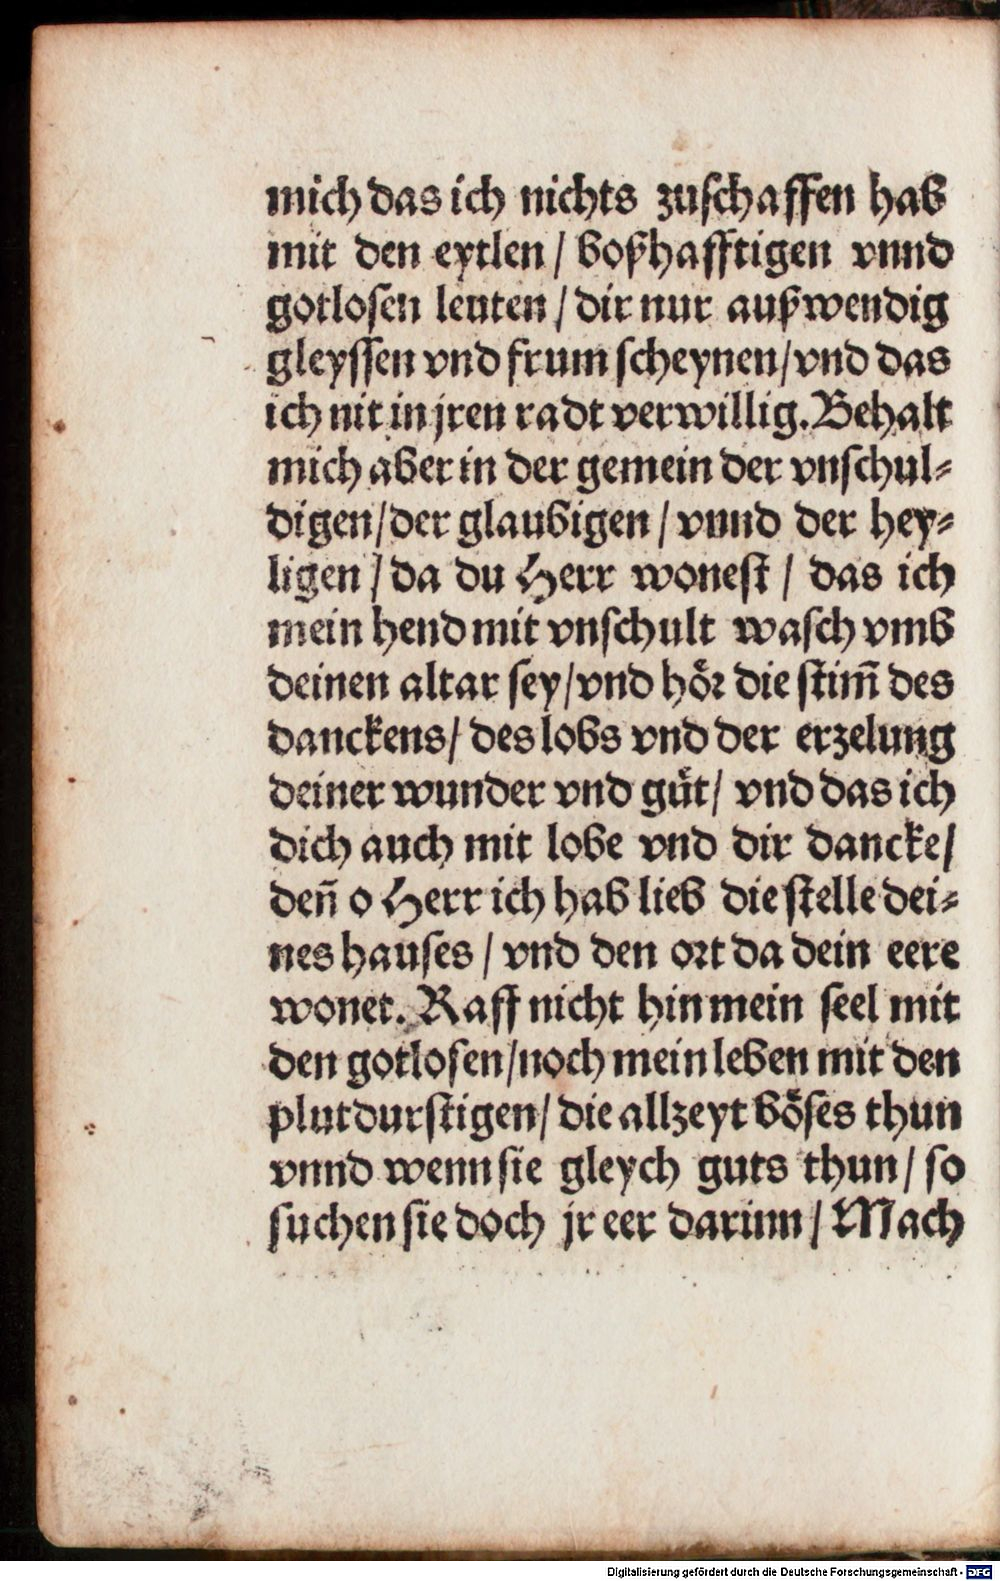 mich das ich nichts zuschaffen hab
mit den eytlen / boßhafftigen vnnd
gotlosen leuten / dir nur außwendig
gleyssen vnd frum scheynen / vnd das
ich nit in jren radt verwillig. Behalt
mich aber in der gemein der vnschul⸗
digen / der glaubigen / vnnd der hey⸗
ligen / da du Herr wonest / das ich
mein hend mit vnschult wasch vmb
deinen altar sey / vnd hoͤr die stim̃ des
danckens / des lobs vnd der erzelung
deiner wunder vnd guͤt / vnd das ich
dich auch mit lobe vnd dir dancke /
den̄ o Herr ich hab lieb die stelle dei⸗
nes hauses / vnd den ort da dein eere
wonet. Raff nicht hin mein seel mit
den gotlosen / noch mein leben mit den
plutdurstigen / die allzeyt boͤses thun
vnnd wenn sie gleych guts thun / so
suchen sie doch jr eer darinn / Mach
Digitalisierung gefördert durch die Deutsche Forschungsgemeinschaft - DFG